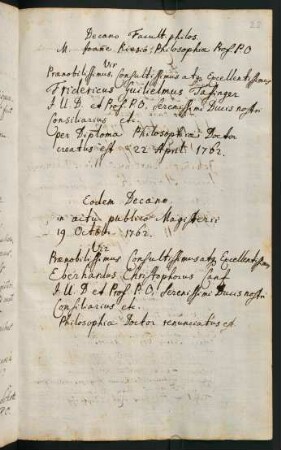 Decano Facult. philos.
M. Joanne Kiesio, Philosophiæ Prof. P. O
Vir
Prænobilissimus, Consultissimus atq Excellentissimus
Fridericus Guilielmus Tafinger
I. U. D. et Prof. P. O. Serenissimi Ducis nostri
Consiliarius etc.
per Diploma Philosophiæ Doctor
creatus est 22 April. 1762.
Eodem Decano
in actu publico Magisterii
19 Octobr. 1762.
Vir
Prænobilissimus Consultissimus atq Excellentissimus
Eberhardus Christophorus Canz
I. U. D. et Prof. P. O. Serenissimi Ducis nostri
Consiliarius etc.
Philosophiæ Doctor renunciatus est.